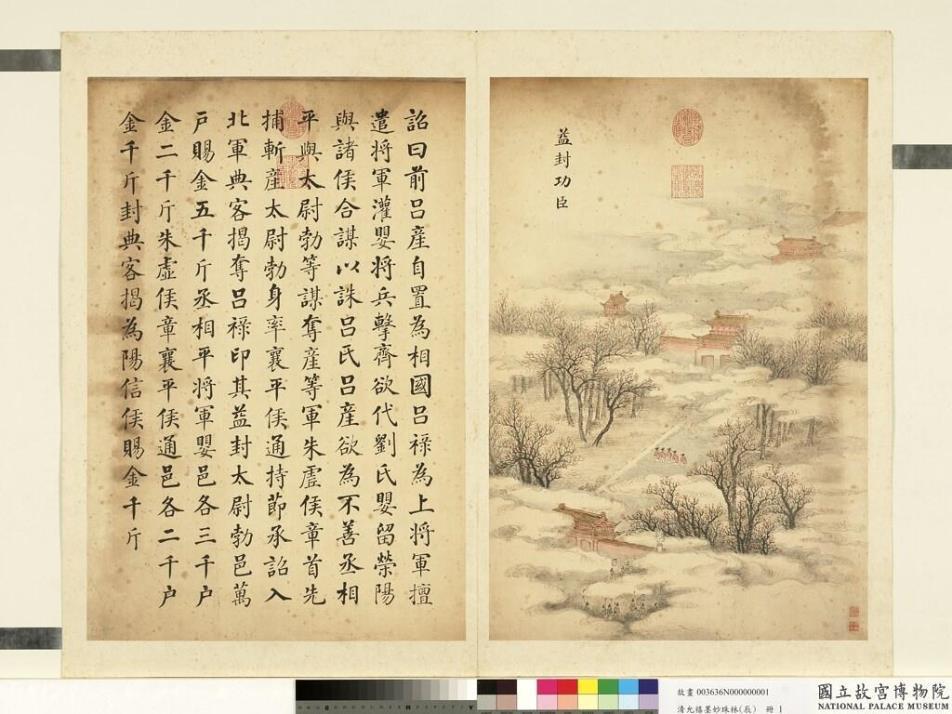 益封功臣
詔曰前呂產自置為相國呂祿為上將軍擅
遣將軍灌嬰將兵擊齊欲代劉氏嬰留滎陽
與諸侯合謀以誅呂氏呂產欲為不善丞相
平與太尉勃等謀奪產等軍朱虛侯章首先
捕斬產太尉勃身率襄平侯通持節承詔入
北軍典客揭奪呂祿印其益封太尉勃邑萬
戶賜金五千斤丞相平將軍嬰邑各三千戶
金二千斤朱虛侯章襄平侯通邑各二千戶
金千斤封典客揭為陽信侯賜金千斤
故畫 003636N000000001
清允禧墨妙珠林(辰) 冊 1
國立故宮博物院
NATIONAL PALACE MUSEUM